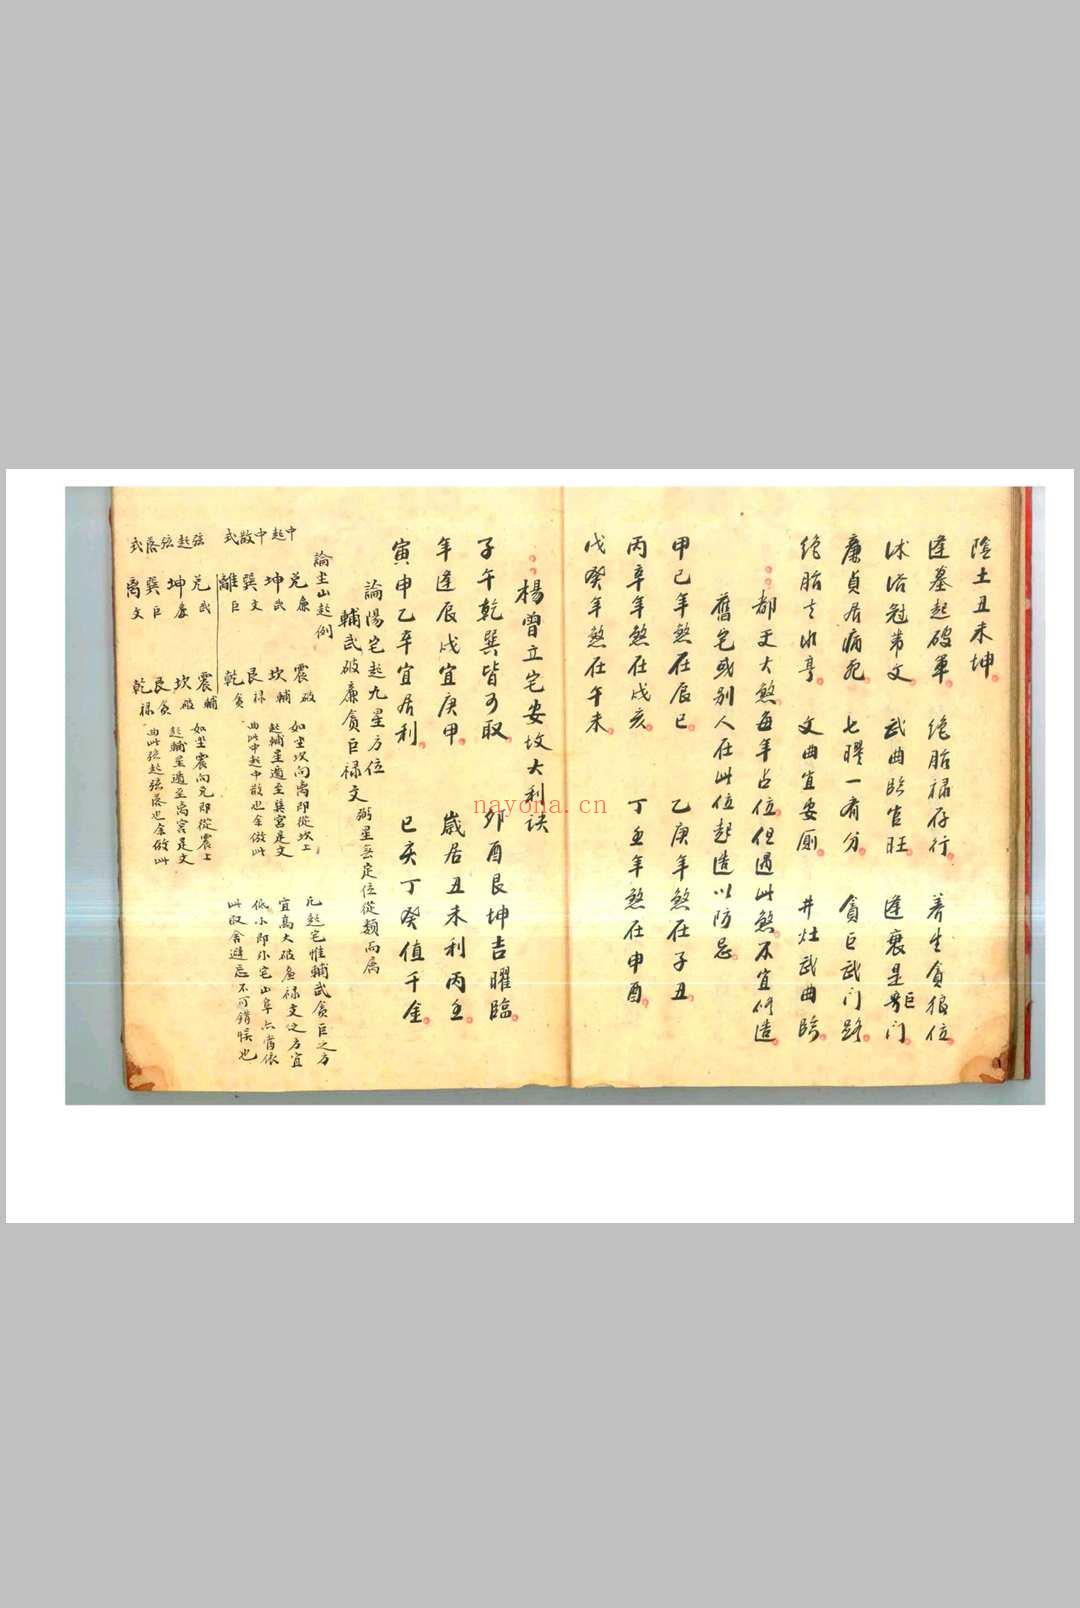 陰土丑未坤
逢墓起破軍 絶胎禄存行 養生貪狼位
沐浴冠帯文 武曲臨官旺 逢衰是巨門
廉貞居病死 七曜一齊分 貪巨武門路
絶胎 文曲宜安厠 井灶武曲臨
都天大煞每年占位但遇此煞不宜修造
舊宅或別人在此位起造以防忌
甲己年煞在辰巳 乙庚年煞在子丑
丙辛年煞在戌亥 丁壬年煞在申酉
戊癸年煞在午未
楊曾立宅安坟大利訣
子午乾巽皆可取 卯酉艮坤吉曜臨
年逢辰戌宜庚甲 歲居丑未利丙壬
寅申乙辛宜居利 巳亥丁癸值千金
論陽宅起九星方位
輔武破廉貪巨禄文 弼星無定位從類而属
論坐山起例
中起中散式
兌廉 震破
坤武 坎輔
巽文 艮禄
離巨 乾貪
如坐坎向离即從坎上
起輔星遁至巽宮是文
曲此中起中散也余倣此
凡起宅惟輔武貪巨之方
宜高大破廉禄文之方宜
低小即外宅山阜亦當依
此取舍避忌不可錯悮也
弦起弦落式
兌武 震輔
坤廉 坎破
巽巨 艮貪
离文 乾禄
如坐震向兌即從震上
起輔星遁至离宮是文
曲此弦起弦落也余倣此
nayona.cn